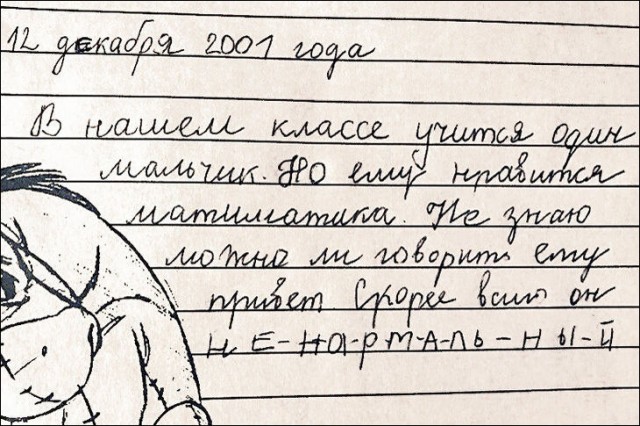 12 декабря 2001 года
В нашем классе учится один
мальчик. Но ему нравится
матиматика. Не знаю
можно ли говорить ему
привет Скорее всиго он
Н Е-НО-Р-М-А-ЛЬ-НЫ-Й